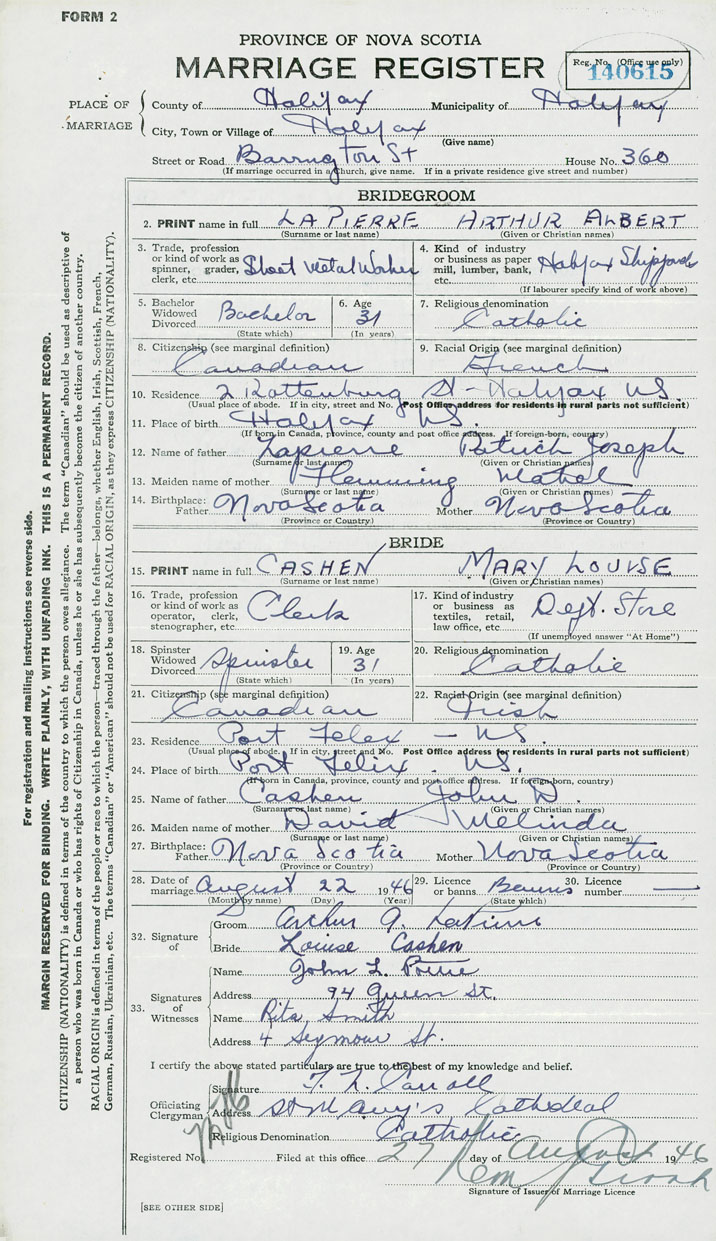 FORM 2
PROVINCE OF NOVA SCOTIA
MARRIAGE REGISTER
Reg. No. (Office use only)
140615
PLACE OF MARRIAGE
County of Halifax Municipality of Halifax
City, Town or Village of Halifax
(Give name)
Street or Road Barrington St House No. 360
(If marriage occurred in a church, give name. If in a private residence give street and number)
BRIDEGROOM
2. PRINT name in full LAPIERRE ARTHUR ALBERT
(Surname or last name) (Given or Christian names)
3. Trade, profession or kind of work as spinner, grader, clerk, etc. Sheet Metal Worker
4. Kind of industry or business as paper mill, lumber, bank, etc. Halifax Shipyards
(If labourer specify kind of work above)
5. Bachelor Widowed Divorced Bachelor
(State which)
6. Age 31
(In years)
7. Religious denomination
Catholic
8. Citizenship (see marginal definition)
Canadian
9. Racial Origin (see marginal definition)
French
10. Residence 2 Rottenburg St - Halifax NS.
(Usual place of abode. If in city, street and No. Post Office address for residents in rural parts not sufficient)
11. Place of birth Halifax NS.
(If born in Canada, province, county and post office address. If foreign-born, country)
12. Name of father Lapierre Patrick Joseph
(Surname or last name) (Given or Christian names)
13. Maiden name of mother Flemming Mabel
(Surname or last name) (Given or Christian names)
14. Birthplace: Father Nova Scotia Mother Nova Scotia
(Province or Country) (Province or Country)
BRIDE
15. PRINT name in full CASHEN MARY LOUISE
(Surname or last name) (Given or Christian names)
16. Trade, profession or kind of work as operator, clerk, stenographer, etc. Clerk
17. Kind of industry or business as textiles, retail, law office, etc. Dept. Store
(If unemployed answer "At Home")
18. Spinster Widowed Divorced Spinster
(State which)
19. Age 31
(In years)
20. Religious denomination
Catholic
21. Citizenship (see marginal definition)
Canadian
22. Racial Origin (see marginal definition)
Irish
23. Residence Port Felix - NS
(Usual place of abode. If in city, street and No. Post Office address for residents in rural parts not sufficient)
24. Place of birth Port Felix. NS.
(If born in Canada, province, county and post office address. If foreign-born, country)
25. Name of father Cashen John D.
(Surname or last name) (Given or Christian names)
26. Maiden name of mother David Melinda
(Surname or last name) (Given or Christian names)
27. Birthplace: Father Nova Scotia Mother Nova Scotia
(Province or Country) (Province or Country)
28. Date of marriage August 22 1946
(Month by name) (Day) (Year)
29. Licence or banns Banns
(State which)
30. Licence number —
32. Signature of
Groom Arthur A. LaPierre
Bride Louise Cashen
33. Signatures of Witnesses
Name John L. Power
Address 94 Queen St.
Name Rita Smith
Address 4 Seymour St.
I certify the above stated particulars are true to the best of my knowledge and belief.
Officiating Clergyman
Signature Carroll
Address St Mary's Cathedral
Religious Denomination Catholic
Registered No. Filed at this office 27 day of August 1946
Signature of Issuer of Marriage Licence
[SEE OTHER SIDE]
For registration and mailing instructions see reverse side.
MARGIN RESERVED FOR BINDING. WRITE PLAINLY, WITH UNFADING INK. THIS IS A PERMANENT RECORD.
CITIZENSHIP (NATIONALITY) is defined in terms of the country to which the person owes allegiance. The term "Canadian" should be used as descriptive of
a person who was born in Canada or who has rights of Citizenship in Canada, unless he or she has subsequently become the citizen of another country.
RACIAL ORIGIN is defined in terms of the people or race to which the person—traced through the father—belongs, whether English, Irish, Scottish, French,
German, Russian, Ukrainian, etc. The terms "Canadian" or "American" should not be used for RACIAL ORIGIN, as they express CITIZENSHIP (NATIONALITY).